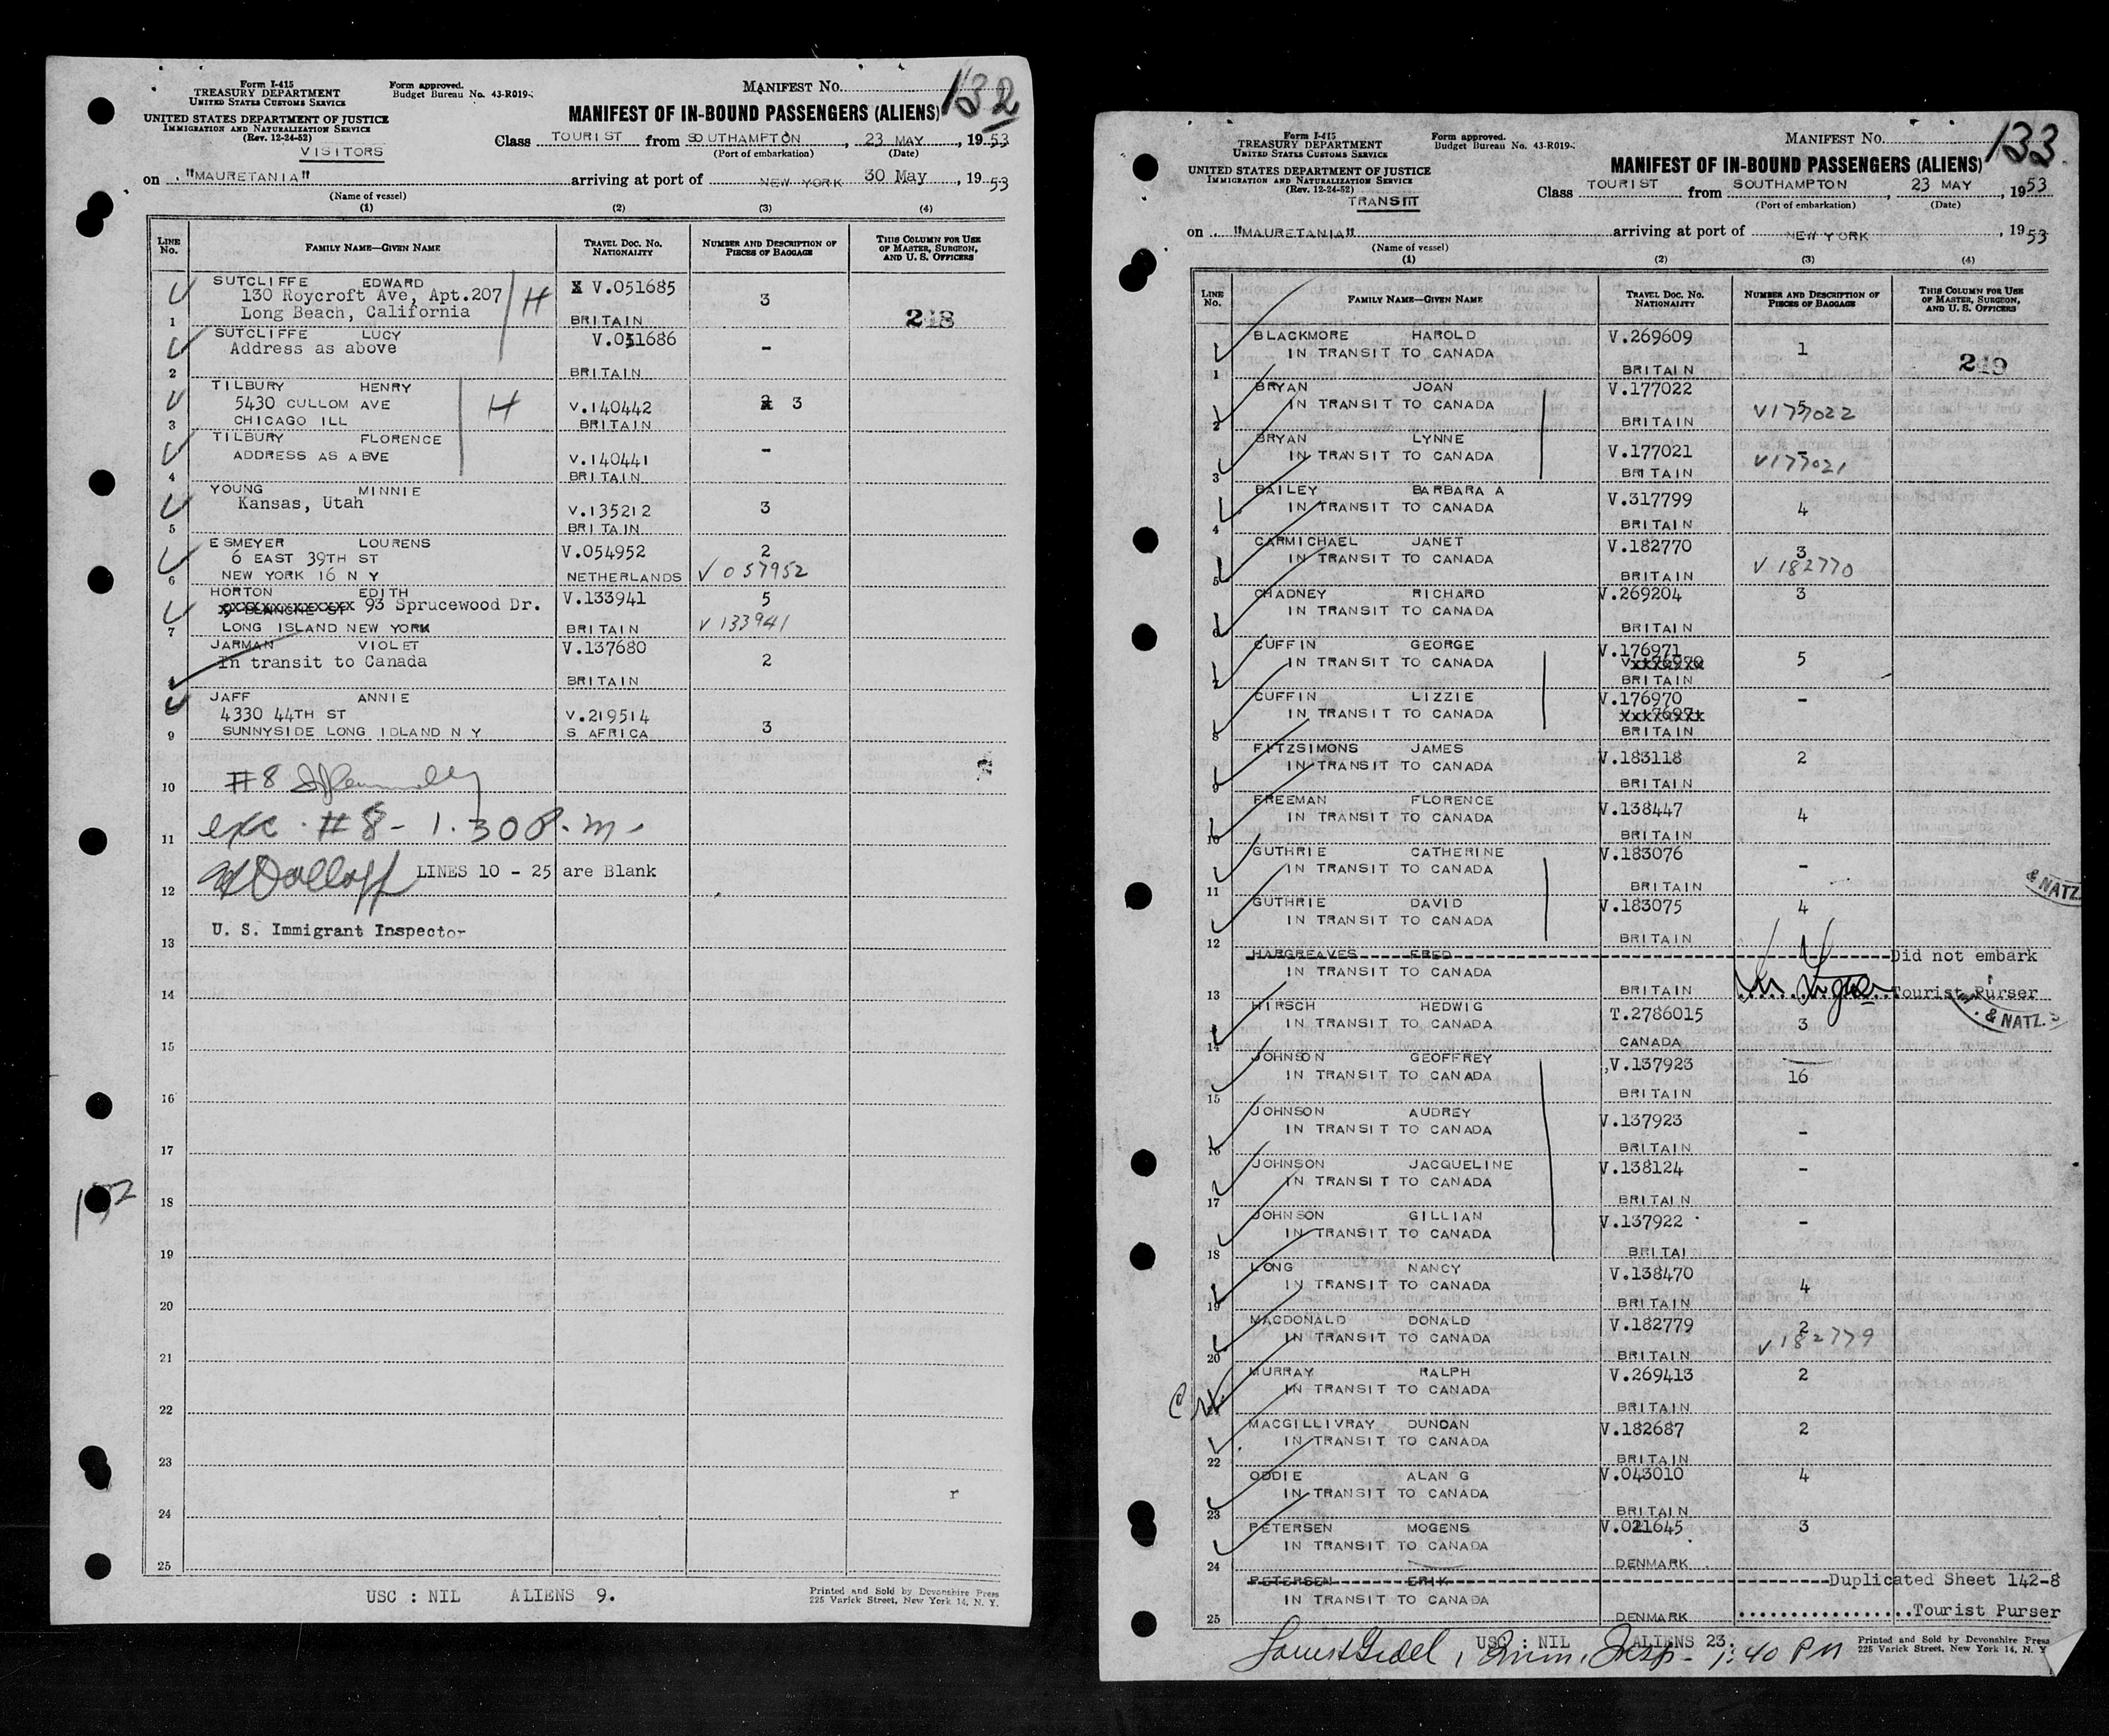 Form I-415
TREASURY DEPARTMENT
UNITED STATES CUSTOMS SERVICE
UNITED STATES DEPARTMENT OF JUSTICE
IMMIGRATION AND NATURALIZATION SERVICE
(Rev. 12-24-52)
VISITORS
Form approved.
Budget Bureau No. 43-R019-
MANIFEST No. 132
MANIFEST OF IN-BOUND PASSENGERS (ALIENS)
Class TOURIST from SOUTHAMPTON, 23 MAY, 1953
(Port of embarkation) (Date)
on "MAURETANIA" arriving at port of NEW YORK 30 May, 1953
(Name of vessel)
(1) (2) (3) (4)
LINE No. FAMILY NAME—GIVEN NAME TRAVEL DOC. No. NATIONALITY NUMBER AND DESCRIPTION OF PIECES OF BAGGAGE THIS COLUMN FOR USE OF MASTER, SURGEON, AND U. S. OFFICERS
SUTCLIFFE EDWARD X V.051685
130 Roycroft Ave, Apt.207 H 3
Long Beach, California
1 BRITAIN 248
SUTCLIFFE LUCY V.051686
Address as above -
2 BRITAIN
TILBURY HENRY
5430 CULLOM AVE H V.140442 3
3 CHICAGO ILL BRITAIN
TILBURY FLORENCE -
ADDRESS AS ABVE V.140441
4 BRITAIN
YOUNG MINNIE
Kansas, Utah V.135212 3
5 BRITAIN
ESMEYER LOURENS V.054952 2
6 EAST 39TH ST
6 NEW YORK 16 N Y NETHERLANDS V 057952
HORTON EDITH V.133941 5
93 Sprucewood Dr.
7 LONG ISLAND NEW YORK BRITAIN V 133941
JARMAN VIOLET V.137680
In transit to Canada 2
BRITAIN
JAFF ANNIE
4330 44TH ST V.219514
9 SUNNYSIDE LONG IDLAND N Y S AFRICA 3
10 #8
11 exc. #8- 1.30 P.m.
12 LINES 10 - 25 are Blank
13 U. S. Immigrant Inspector
14
15
16
17
18
19
20
21
22
23
24
25
USC : NIL ALIENS 9.
Printed and Sold by Devonshire Press
225 Varick Street, New York 14, N. Y.
Form I-415
TREASURY DEPARTMENT
UNITED STATES CUSTOMS SERVICE
UNITED STATES DEPARTMENT OF JUSTICE
IMMIGRATION AND NATURALIZATION SERVICE
(Rev. 12-24-52)
TRANSIT
Form approved.
Budget Bureau No. 43-R019-
MANIFEST No. 133
MANIFEST OF IN-BOUND PASSENGERS (ALIENS)
Class TOURIST from SOUTHAMPTON, 23 MAY, 1953
(Port of embarkation) (Date)
on "MAURETANIA" arriving at port of NEW YORK, 1953
(Name of vessel)
(1) (2) (3) (4)
LINE No. FAMILY NAME—GIVEN NAME TRAVEL DOC. No. NATIONALITY NUMBER AND DESCRIPTION OF PIECES OF BAGGAGE THIS COLUMN FOR USE OF MASTER, SURGEON, AND U. S. OFFICERS
BLACKMORE HAROLD V.269609
IN TRANSIT TO CANADA 1
1 BRITAIN 249
BRYAN JOAN V.177022
IN TRANSIT TO CANADA 5 V177022
2 BRITAIN
BRYAN LYNNE V.177021
IN TRANSIT TO CANADA - V177021
3 BRITAIN
BAILEY BARBARA A V.317799
IN TRANSIT TO CANADA 4
4 BRITAIN
CARMICHAEL JANET V.182770 3
IN TRANSIT TO CANADA V 182770
5 BRITAIN
CHADNEY RICHARD V.269204 3
IN TRANSIT TO CANADA
6 BRITAIN
CUFFIN GEORGE V.176971
IN TRANSIT TO CANADA 5
7 BRITAIN
CUFFIN LIZZIE V.176970 -
IN TRANSIT TO CANADA
8 BRITAIN
FITZSIMONS JAMES V.183118 2
IN TRANSIT TO CANADA
9 BRITAIN
FREEMAN FLORENCE V.138447
IN TRANSIT TO CANADA 4
10 BRITAIN
GUTHRIE CATHERINE V.183076
IN TRANSIT TO CANADA -
11 BRITAIN
& NATZ.
GUTHRIE DAVID V.183075 4
IN TRANSIT TO CANADA
12 BRITAIN
HARGREAVES FRED Did not embark
IN TRANSIT TO CANADA
13 BRITAIN Tourist Purser
HIRSCH HEDWIG T.2786015
IN TRANSIT TO CANADA 3 & NATZ.
14 CANADA
JOHNSON GEOFFREY V.137923
IN TRANSIT TO CANADA 16
15 BRITAIN
JOHNSON AUDREY V.137923
IN TRANSIT TO CANADA -
16 BRITAIN
JOHNSON JACQUELINE V.138124 -
IN TRANSIT TO CANADA
17 BRITAIN
JOHNSON GILLIAN V.137922 -
IN TRANSIT TO CANADA
18 BRITAI
LONG NANCY V.138470
IN TRANSIT TO CANADA 4
19 BRITAIN
MACDONALD DONALD V.182779 2
IN TRANSIT TO CANADA V 182779
20 BRITAIN
MURRAY RALPH V.269413 2
IN TRANSIT TO CANADA
BRITAIN
MACGILLIVRAY DUNCAN V.182687 2
IN TRANSIT TO CANADA
22 BRITAIN
ODDIE ALAN G V.043010 4
IN TRANSIT TO CANADA
23 BRITAIN
PETERSEN MOGENS V.021645 3
IN TRANSIT TO CANADA
24 DENMARK
PETERSEN ERIK Duplicated Sheet 142-8
IN TRANSIT TO CANADA
25 DENMARK Tourist Purser
USC : NIL ALIENS 23.
Imm. Insp- 1:40 PM
Printed and Sold by Devonshire Press
225 Varick Street, New York 14, N. Y.